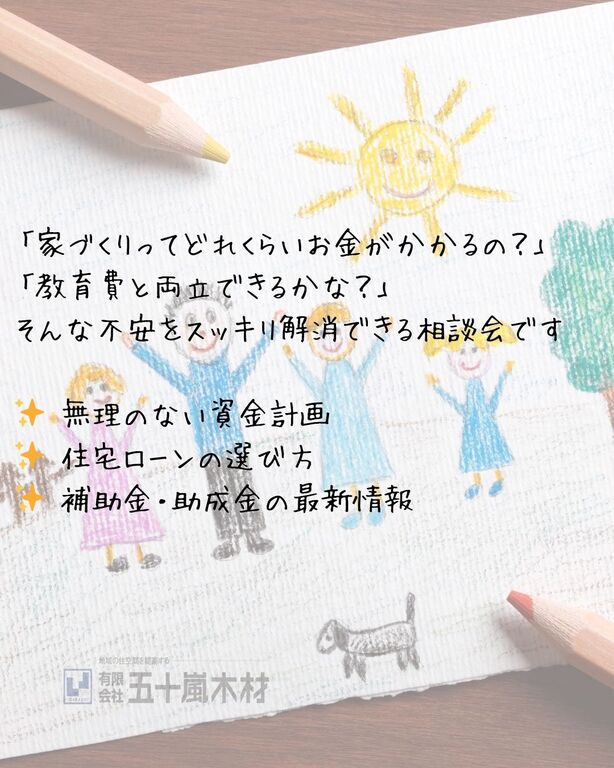 「家づくりってどれくらいお金がかかるの？」
「教育費と両立できるかな？」
そんな不安をスッキリ解消できる相談会です
✨ 無理のない資金計画
✨ 住宅ローンの選び方
✨ 補助金・助成金の最新情報
地域の住空間を提案する
有限会社 五十嵐木材